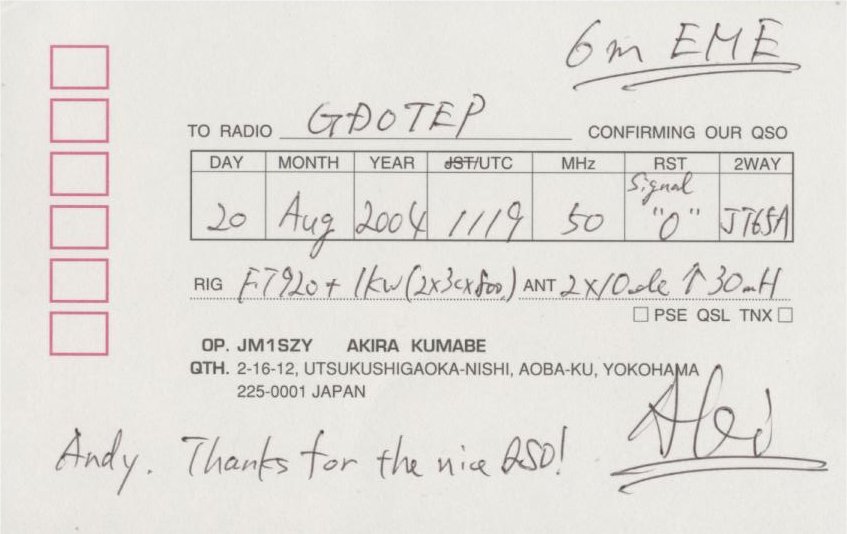 6m EME
TO RADIO GD0TEP CONFIRMING OUR QSO
DAY MONTH YEAR JST/UTC MHz RST 2WAY
Signal
20 Aug 2004 1119 50 "O" JT65A
RIG FT920 + 1kw (2x3cx800) ANT 2x10ele ↑ 30mH
☐ PSE QSL TNX ☐
OP. JM1SZY AKIRA KUMABE
QTH. 2-16-12, UTSUKUSHIGAOKA-NISHI, AOBA-KU, YOKOHAMA
225-0001 JAPAN
Andy. Thanks for the nice QSO!